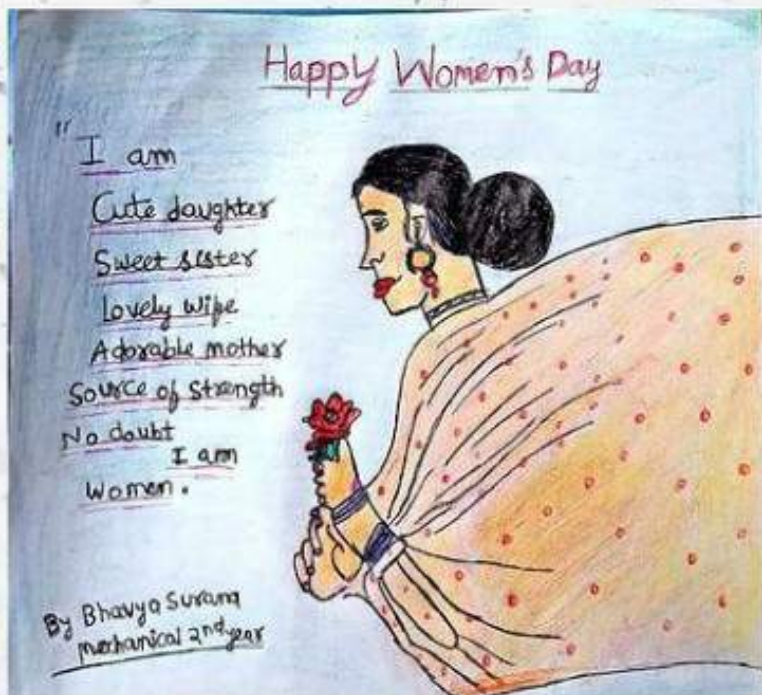 Happy Women's Day
"I am
Cute daughter
Sweet sister
Lovely wife
Adorable mother
Source of Strength
No doubt
I am
Women.
By Bhavya Surana
mechanical 2nd year